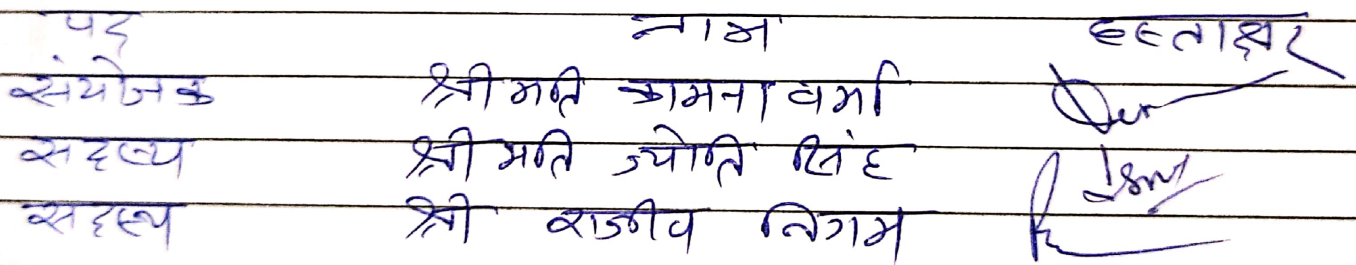 पद नाम हस्ताक्षर
संयोजक श्रीमति कामना वर्मा
सदस्य श्रीमति ज्योति सिंह
सदस्य श्री राजीव निगम